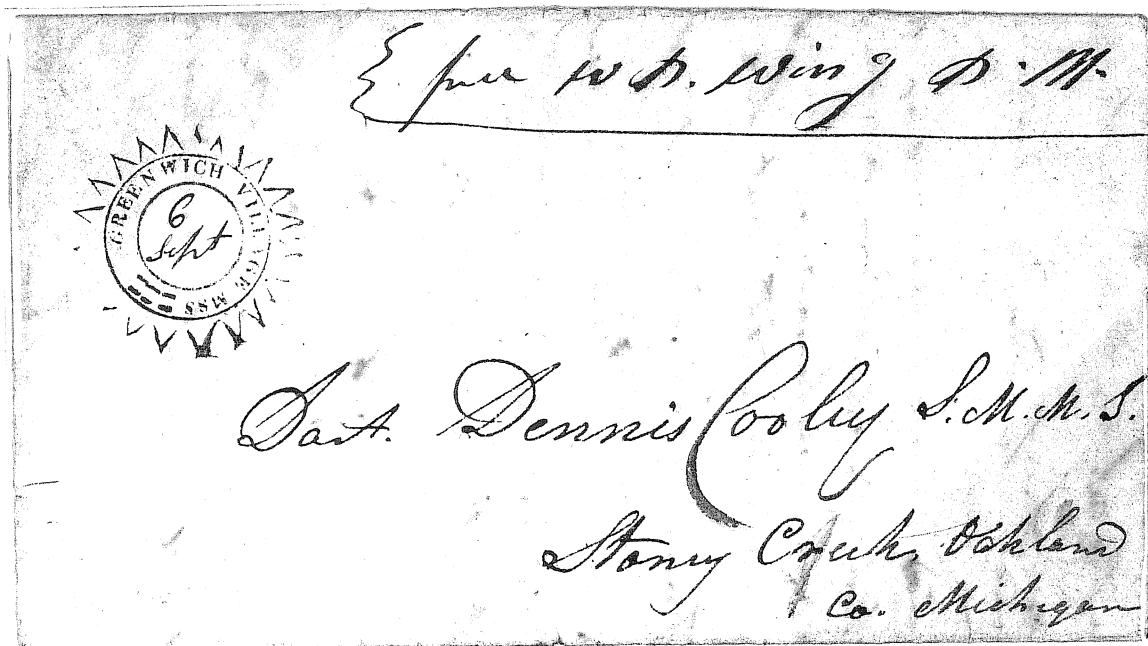 free W. P. Wing P. M.
GREENWICH VILLAGE MSS
6
Sept
Doct. Dennis Cooley L. M. M. S.
Stoney Creek, Oakland
Co. Michigan